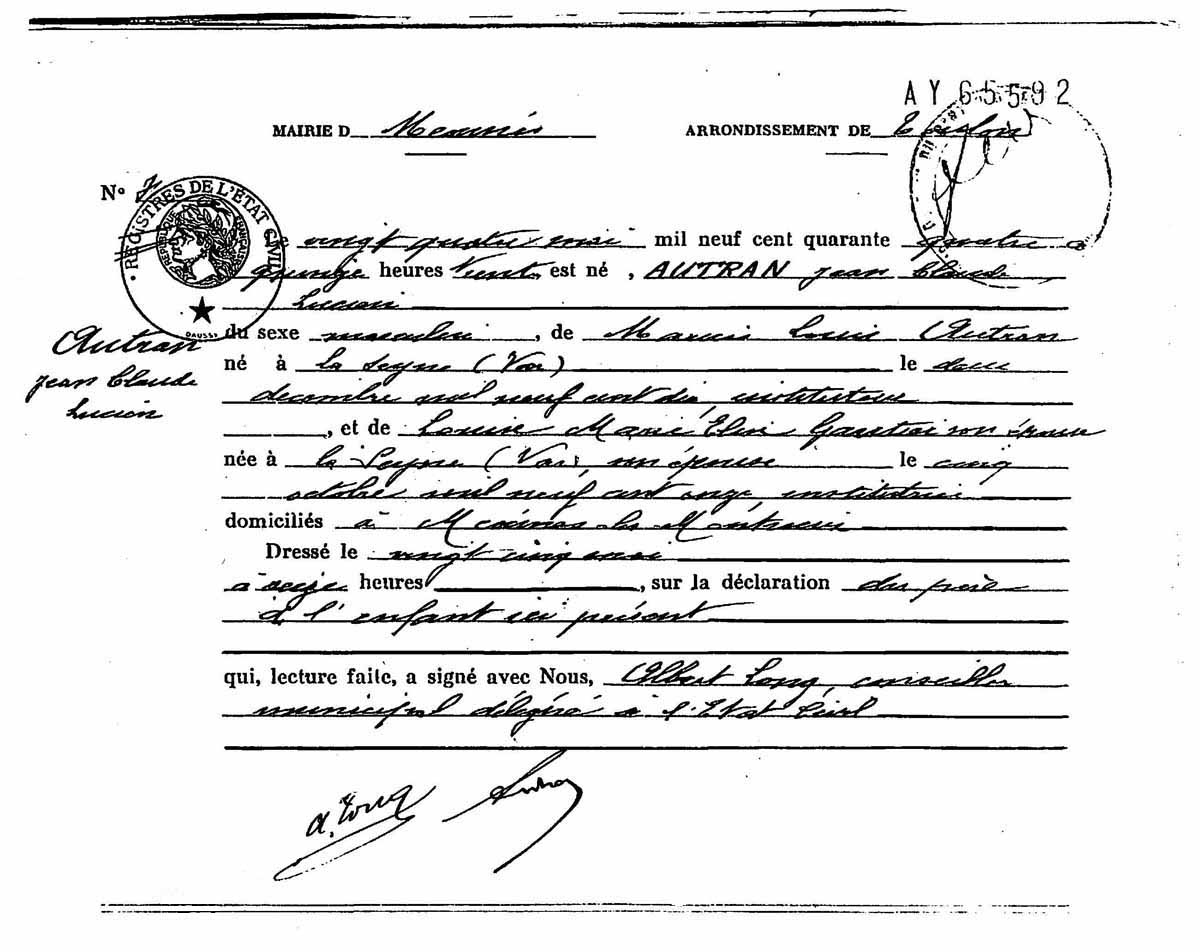 AY 65592
MAIRIE D Méounes ARRONDISSEMENT DE Toulon
N° 7
REGISTRES DE L'ÉTAT CIVIL
RÉPUBLIQUE FRANÇAISE
Le vingt quatre mai mil neuf cent quarante quatre à
quinze heures vingt est né, AUTRAN Jean Claude
Lucien
du sexe masculin, de Marius Louis Autran
né à La Seyne (Var) le deux
décembre mil neuf cent dix, instituteur
, et de Louise Marie Gautier son épouse
née à la Seyne (Var), son épouse le cinq
octobre mil neuf cent onze, institutrice
domiciliés à Méounes-les-Montrieux
Dressé le vingt cinq mai
à seize heures, sur la déclaration du père
de l'enfant ici présent
qui, lecture faite, a signé avec Nous, Albert Long, conseiller
municipal délégué à l'Etat Civil
Autran
Jean Claude
Lucien
A. Long Autran